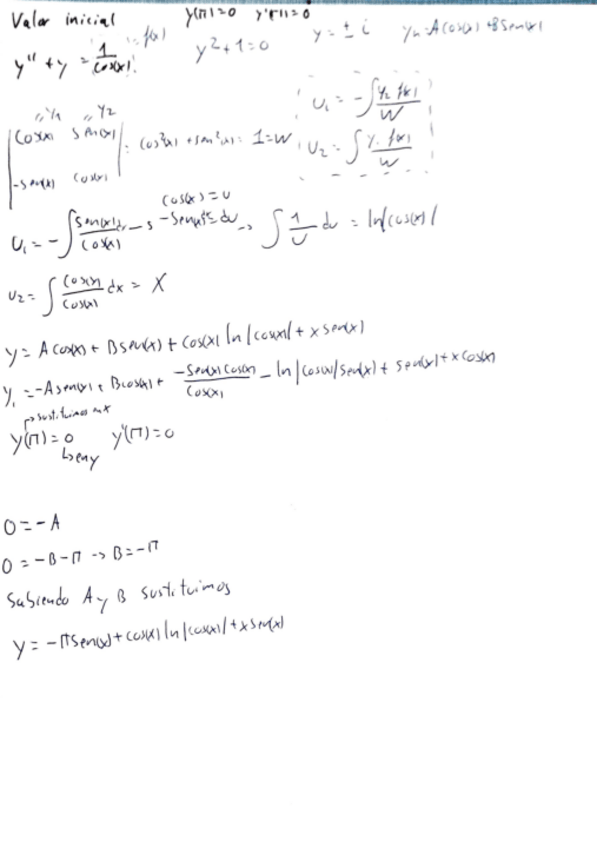 Valor inicial y(π)=0 y'(π)=0
y'' + y = 1/cos(x) "f(x) y²+1=0 y = ± i yₕ=Acos(x)+BSen(x)
"y₁ "y₂
|cos(x) sen(x)|
|-sen(x) cos(x)| : cos²(x) + sen²(x) = 1=W
U₁ = -∫ y₂ f(x)/W
U₂ = ∫ y₁ f(x)/W
U₁ = -∫ sen(x)/cos(x) dx → cos(x)=u -sen(x)dx=du → ∫ 1/u du = ln|cos(x)|
U₂ = ∫ cos(x)/cos(x) dx = X
y = Acos(x) + Bsen(x) + cos(x) ln|cos(x)| + x sen(x)
y' = -Asen(x) + Bcos(x) + -sen(x)cos(x)/cos(x) - ln|cos(x)|sen(x) + sen(x) + x cos(x)
sustituimos en x
y(π)=0 y'(π)=0
↳en y
0 = -A
0 = -B-π → B=-π
Sabiendo A y B sustituimos
y = -πsen(x) + cos(x) ln|cos(x)| + x sen(x)